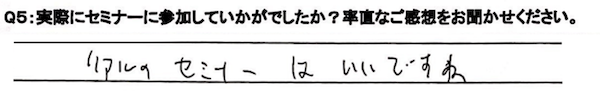 Q5：実際にセミナーに参加していかがでしたか？率直なご感想をお聞かせください。
リアルの セミナー は いいですね